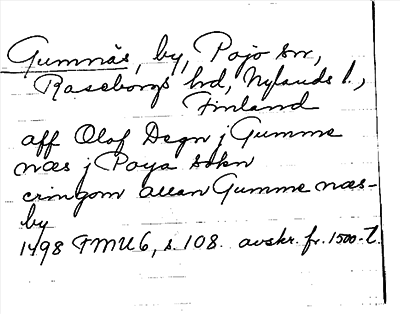 Gumnäs, by, Pojo sn,
Raseborgs hd, Nylands l.,
Finland
aff Olof Degn j Gumme
næs j Poya sokn
cringom allan Gumme næs-
by
1498 FMU 6, s 108. avskr. fr. 1500-t.